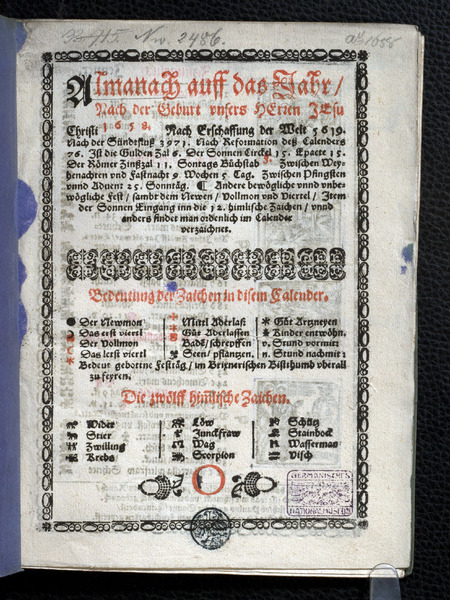 Nw. 2486.
Almanach auff das Jahr /
Nach der Geburt vnsers HErren JEsu
Christi 1658. Nach Erschaffung der Welt 5619.
Nach der Sündefluß 3971. Nach Reformation deß Calenders
76. Ist die Gulden Zal 6. Der Sonnen Circkel 15. Epacte 15.
Der Römer Zinßzal 11. Sontags Büchstab Zwischen Wey-
henachten vnd Fastnacht 9 Wochen 5 Tag. Zwischen Pfingsten
vnnd Advent 25. Sonntäg. ¶ Andere bewögliche vnnd vnbe-
wögliche Fest / sambt dem Newen / Vollmon vnd Viertel / Item
der Sonnen Eingang inn die 12. himlische Zaichen / vnnd
anders findet man ordenlich im Calender
verzaichnet.
Bedeutung der Zaichen in disem Calender.
Der Newmon
Das erst viertl
Der Vollmon
Das letst viertl
Mittl Aderlaß
Güt Aderlassen
Badē / schrepffen
Seen / pflantzen.
Güt Artzneyen
Kinder entwöhn.
v. Stund vormit:
n. Stund nachmit:
Bedeut gebottne Festäg / im Brixnerischen Bisthumb vberall
zu feyren.
Die zwölff himlische Zaichen.
Wider
Stier
Zwilling
Krebs
Löw
Junckfraw
Wag
Scorpion
Schütz
Stainbock
Wasserman
Visch
GERMANISCHES
NATIONALMUSEUM